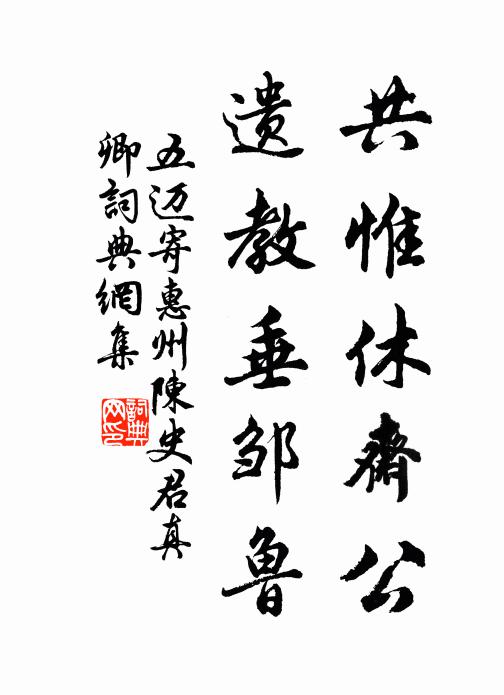 共惟休齋公
遗教垂邹魯
五迈寄惠州陳史君真
卿詞典網集
詞典网印